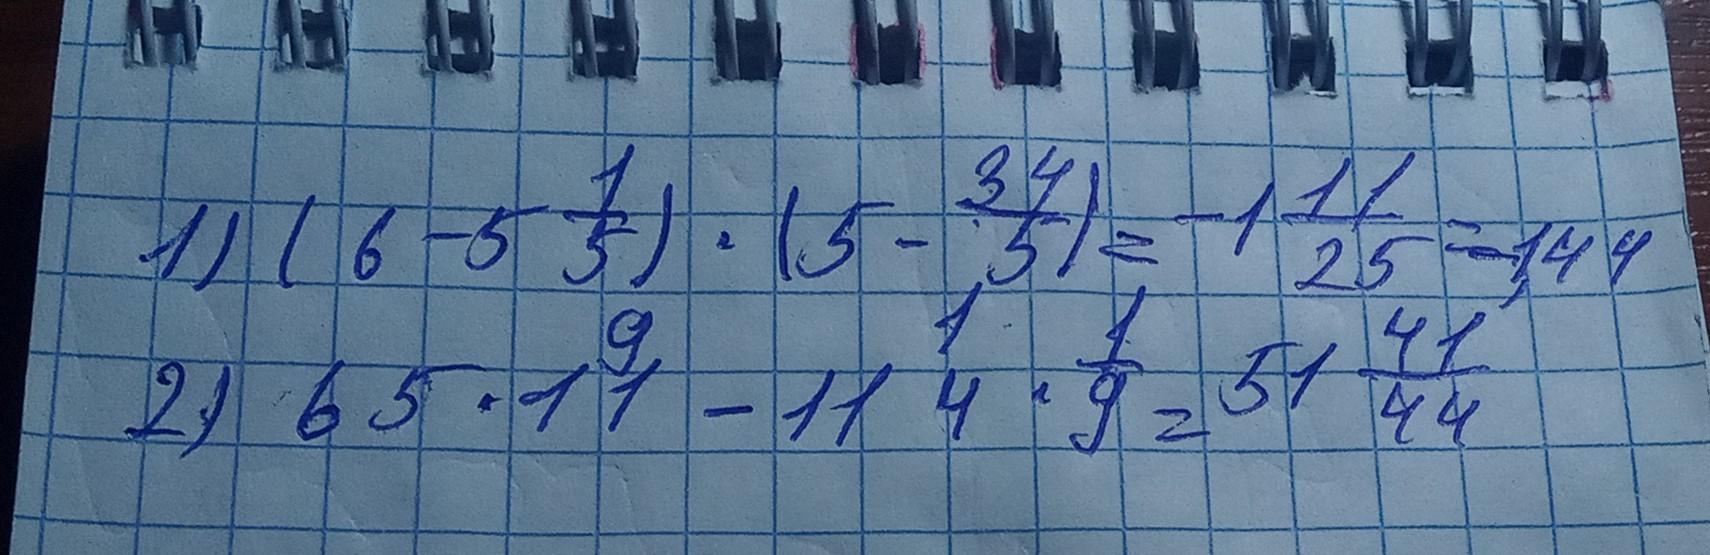 1) (6-5 1/5) · (5 - 34/5) = -1 11/25 = -1,44
2) 65 · 9/11 - 11 1/4 · 1/9 = 51 41/44